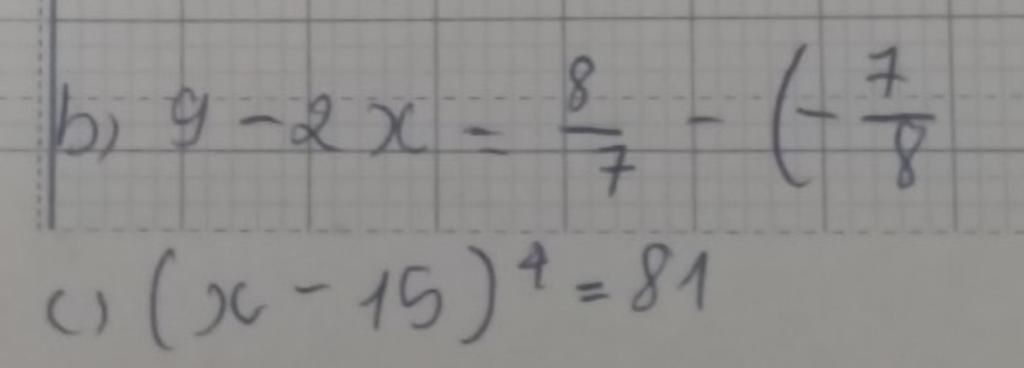 b) 9 - 2x = 8/7 - (- 7/8
c) (x - 15)^4 = 81